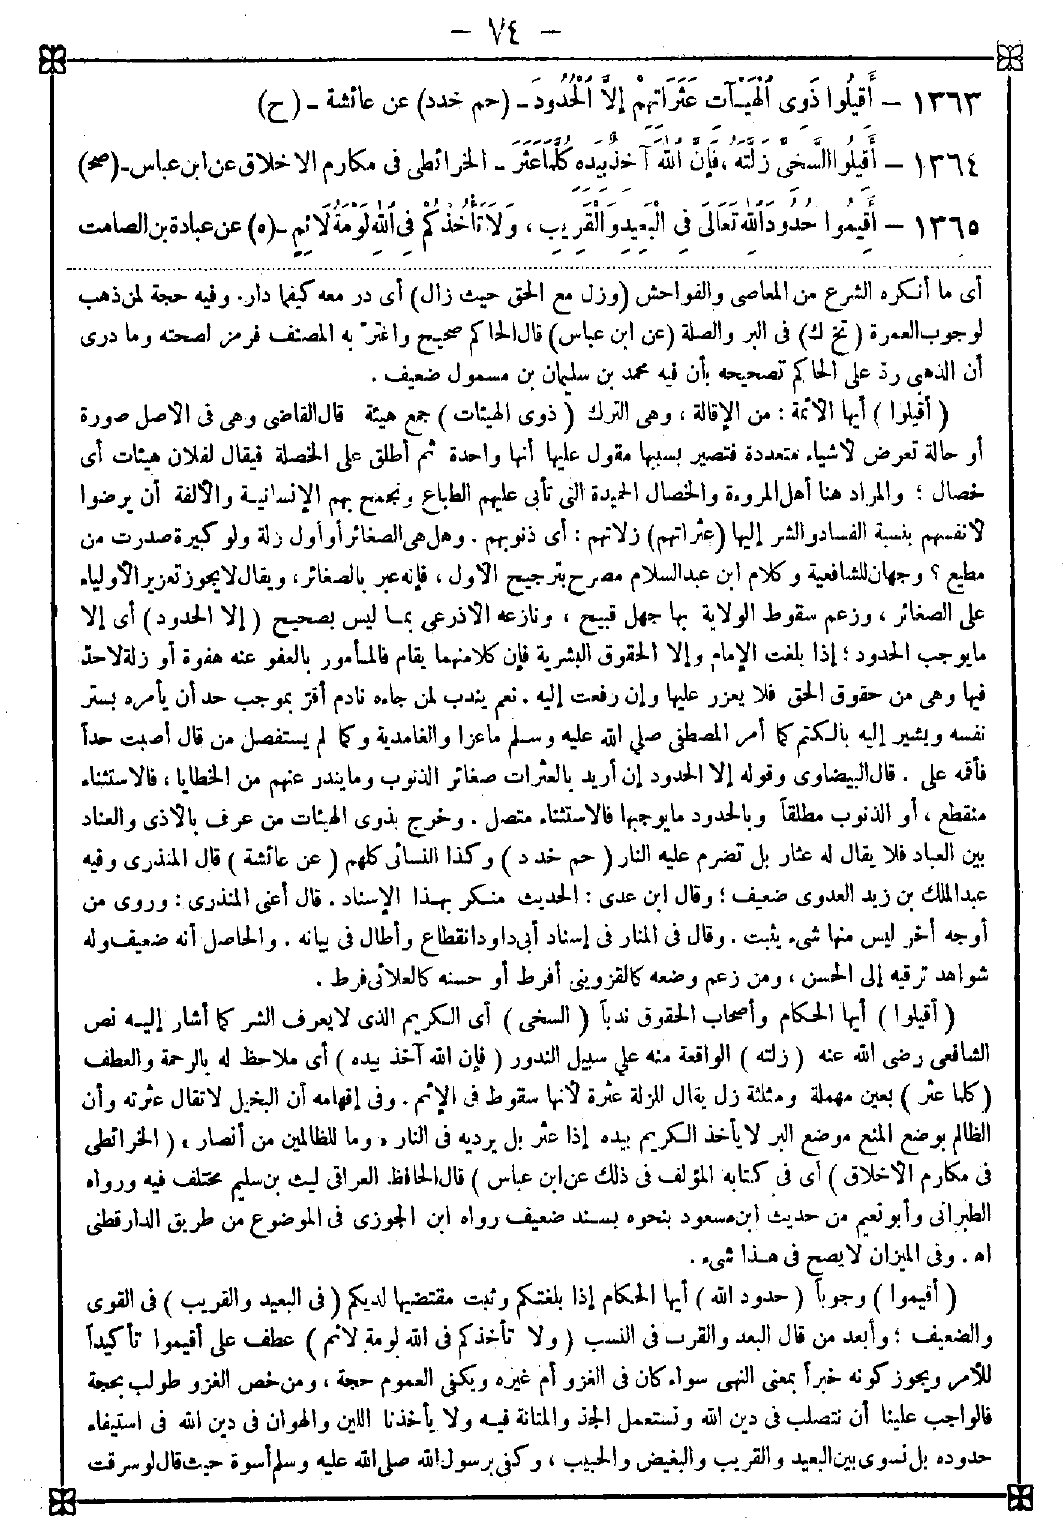 – ٧٤ –
١٣٦٣ – أَقِيلُوا ذَوِى الْهَيْآتِ عَثَرَاتِهِمْ إِلَّا الْحُدُودَ – (حم خدد) عن عائشة – (ح)
١٣٦٤ – أَقِيلُوا السَّخِىَّ زَلَّتَهُ، فَإِنَّ اللّٰهَ آخِذٌ بِيَدِهِ كُلَّمَا عَثَرَ – الخرائطى فى مكارم الاخلاق عن ابن عباس – (صح)
١٣٦٥ – أَقِيمُوا حُدُودَ اللّٰهِ تَعَالَى فِى الْبَعِيدِ وَالْقَرِيبِ، وَلَا تَأْخُذُكُمْ فِى اللّٰهِ لَوْمَةُ لَائِمٍ – (ه) عن عبادة بن الصامت
أى ما أنكره الشرع من المعاصى والفواحش (وزل مع الحق حيث زال) أى در معه كيفما دار. وفيه حجة لمن ذهب
لوجوب العمرة (تخ ك) فى البر والصلة (عن ابن عباس) قال الحاكم صحيح واغترّ به المصنف فرمز لصحته وما درى
أن الذهبى ردّ على الحاكم تصحيحه بأن فيه محمد بن سليمان بن مسمول ضعيف.
(أقيلوا) أيها الأئمة: من الإقالة، وهى الترك (ذوى الهيئات) جمع هيئة قال القاضى وهى فى الأصل صورة
أو حالة تعرض لأشياء متعددة فتصير بسببها مقول عليها أنها واحدة ثم أطلق على الخصلة فيقال لفلان هيئات أى
خصال؛ والمراد هنا أهل المروءة والخصال الحميدة التى تأبى عليهم الطباع وتجمح بهم الإنسانية والألفة أن يرضوا
لأنفسهم بنسبة الفساد والشر إليها (عثراتهم) زلاتهم: أى ذنوبهم. وهل هى الصغائر أو أول زلة ولو كبيرة صدرت من
مطيع؟ وجهان للشافعية وكلام ابن عبد السلام مصرح بترجيح الأول، فإنه عبر بالصغائر، ويقال لا يجوز تعزير الأولياء
على الصغائر، وزعم سقوط الولاية بها جهل قبيح، ونازعه الأذرعى بما ليس بصحيح (إلا الحدود) أى إلا
ما يوجب الحدود؛ إذا بلغت الإمام وإلا الحقوق البشرية فإن كلا منهما يقام فالمأمور بالعفو عنه هفوة أو زلة لا حدّ
فيها وهى من حقوق الحق فلا يعزر عليها وإن رفعت إليه. نعم يندب لمن جاءه نادم أقرّ بموجب حد أن يأمره بستر
نفسه ويشير إليه بالكتم كما أمر المصطفى صلى الله عليه وسلم ماعزا والغامدية وكما لم يستفصل من قال أصبت حداً
فأقمه على. قال البيضاوى وقوله إلا الحدود إن أريد بالعثرات صغائر الذنوب وما يندر عنهم من الخطايا، فالاستثناء
منقطع، أو الذنوب مطلقاً وبالحدود ما يوجبها فالاستثناء متصل. وخرج بذوى الهيئات من عرف بالأذى والعناد
بين العباد فلا يقال له عثار بل تضرم عليه النار (حم خد د) وكذا النسائى كلهم (عن عائشة) قال المنذرى وفيه
عبد الملك بن زيد العدوى ضعيف؛ وقال ابن عدى: الحديث منكر بهذا الإسناد. قال أعنى المنذرى: وروى من
أوجه أخر ليس منها شىء يثبت. وقال فى المنار فى إسناد أبى داود انقطاع وأطال فى بيانه. والحاصل أنه ضعيف وله
شواهد ترقيه إلى الحسن، ومن زعم وضعه كالقزوينى أفرط أو حسنه كالعلائى فرط.
(أقيلوا) أيها الحكام وأصحاب الحقوق ندباً (السخى) أى الكريم الذى لا يعرف الشر كما أشار إليه نص
الشافعى رضى الله عنه (زلته) الواقعة منه على سبيل الندور (فإن الله آخذ بيده) أى ملاحظ له بالرحمة والعطف
(كلما عثر) بعين مهملة ومثلثة زل يقال للزلة عثرة لأنها سقوط فى الإثم. وفى إفهامه أن البخيل لا تقال عثرته وأن
الظالم بوضع المنع موضع البر لا يأخذ الكريم بيده إذا عثر بل يرديه فى النار «وما للظالمين من أنصار» (الخرائطى
فى مكارم الأخلاق) أى فى كتابه المؤلف فى ذلك عن ابن عباس) قال الحافظ العراقى ليث بن سليم مختلف فيه ورواه
الطبرانى وأبو نعيم من حديث ابن مسعود بنحوه بسند ضعيف رواه ابن الجوزى فى الموضوع من طريق الدارقطنى
اه. وفى الميزان لا يصح فى هذا شىء.
(أقيموا) وجوباً (حدود الله) أيها الحكام إذا بلغتكم وثبت مقتضيها لديكم (فى البعيد والقريب) فى القوى
والضعيف؛ وأبعد من قال البعد والقرب فى النسب (ولا تأخذكم فى الله لومة لائم) عطف على أقيموا تأكيداً
للأمر ويجوز كونه خبراً بمعنى النهى سواء كان فى الغزو أم غيره ويكفى العموم حجة، ومن خص الغزو طولب بحجة
فالواجب علينا أن نتصلب فى دين الله ونستعمل الجدّ والمتانة فيه ولا يأخذنا اللين والهوان فى دين الله فى استيفاء
حدوده بل نسوى بين البعيد والقريب والبغيض والحبيب، وكفى برسول الله صلى الله عليه وسلم أسوة حيث قال لو سرقت